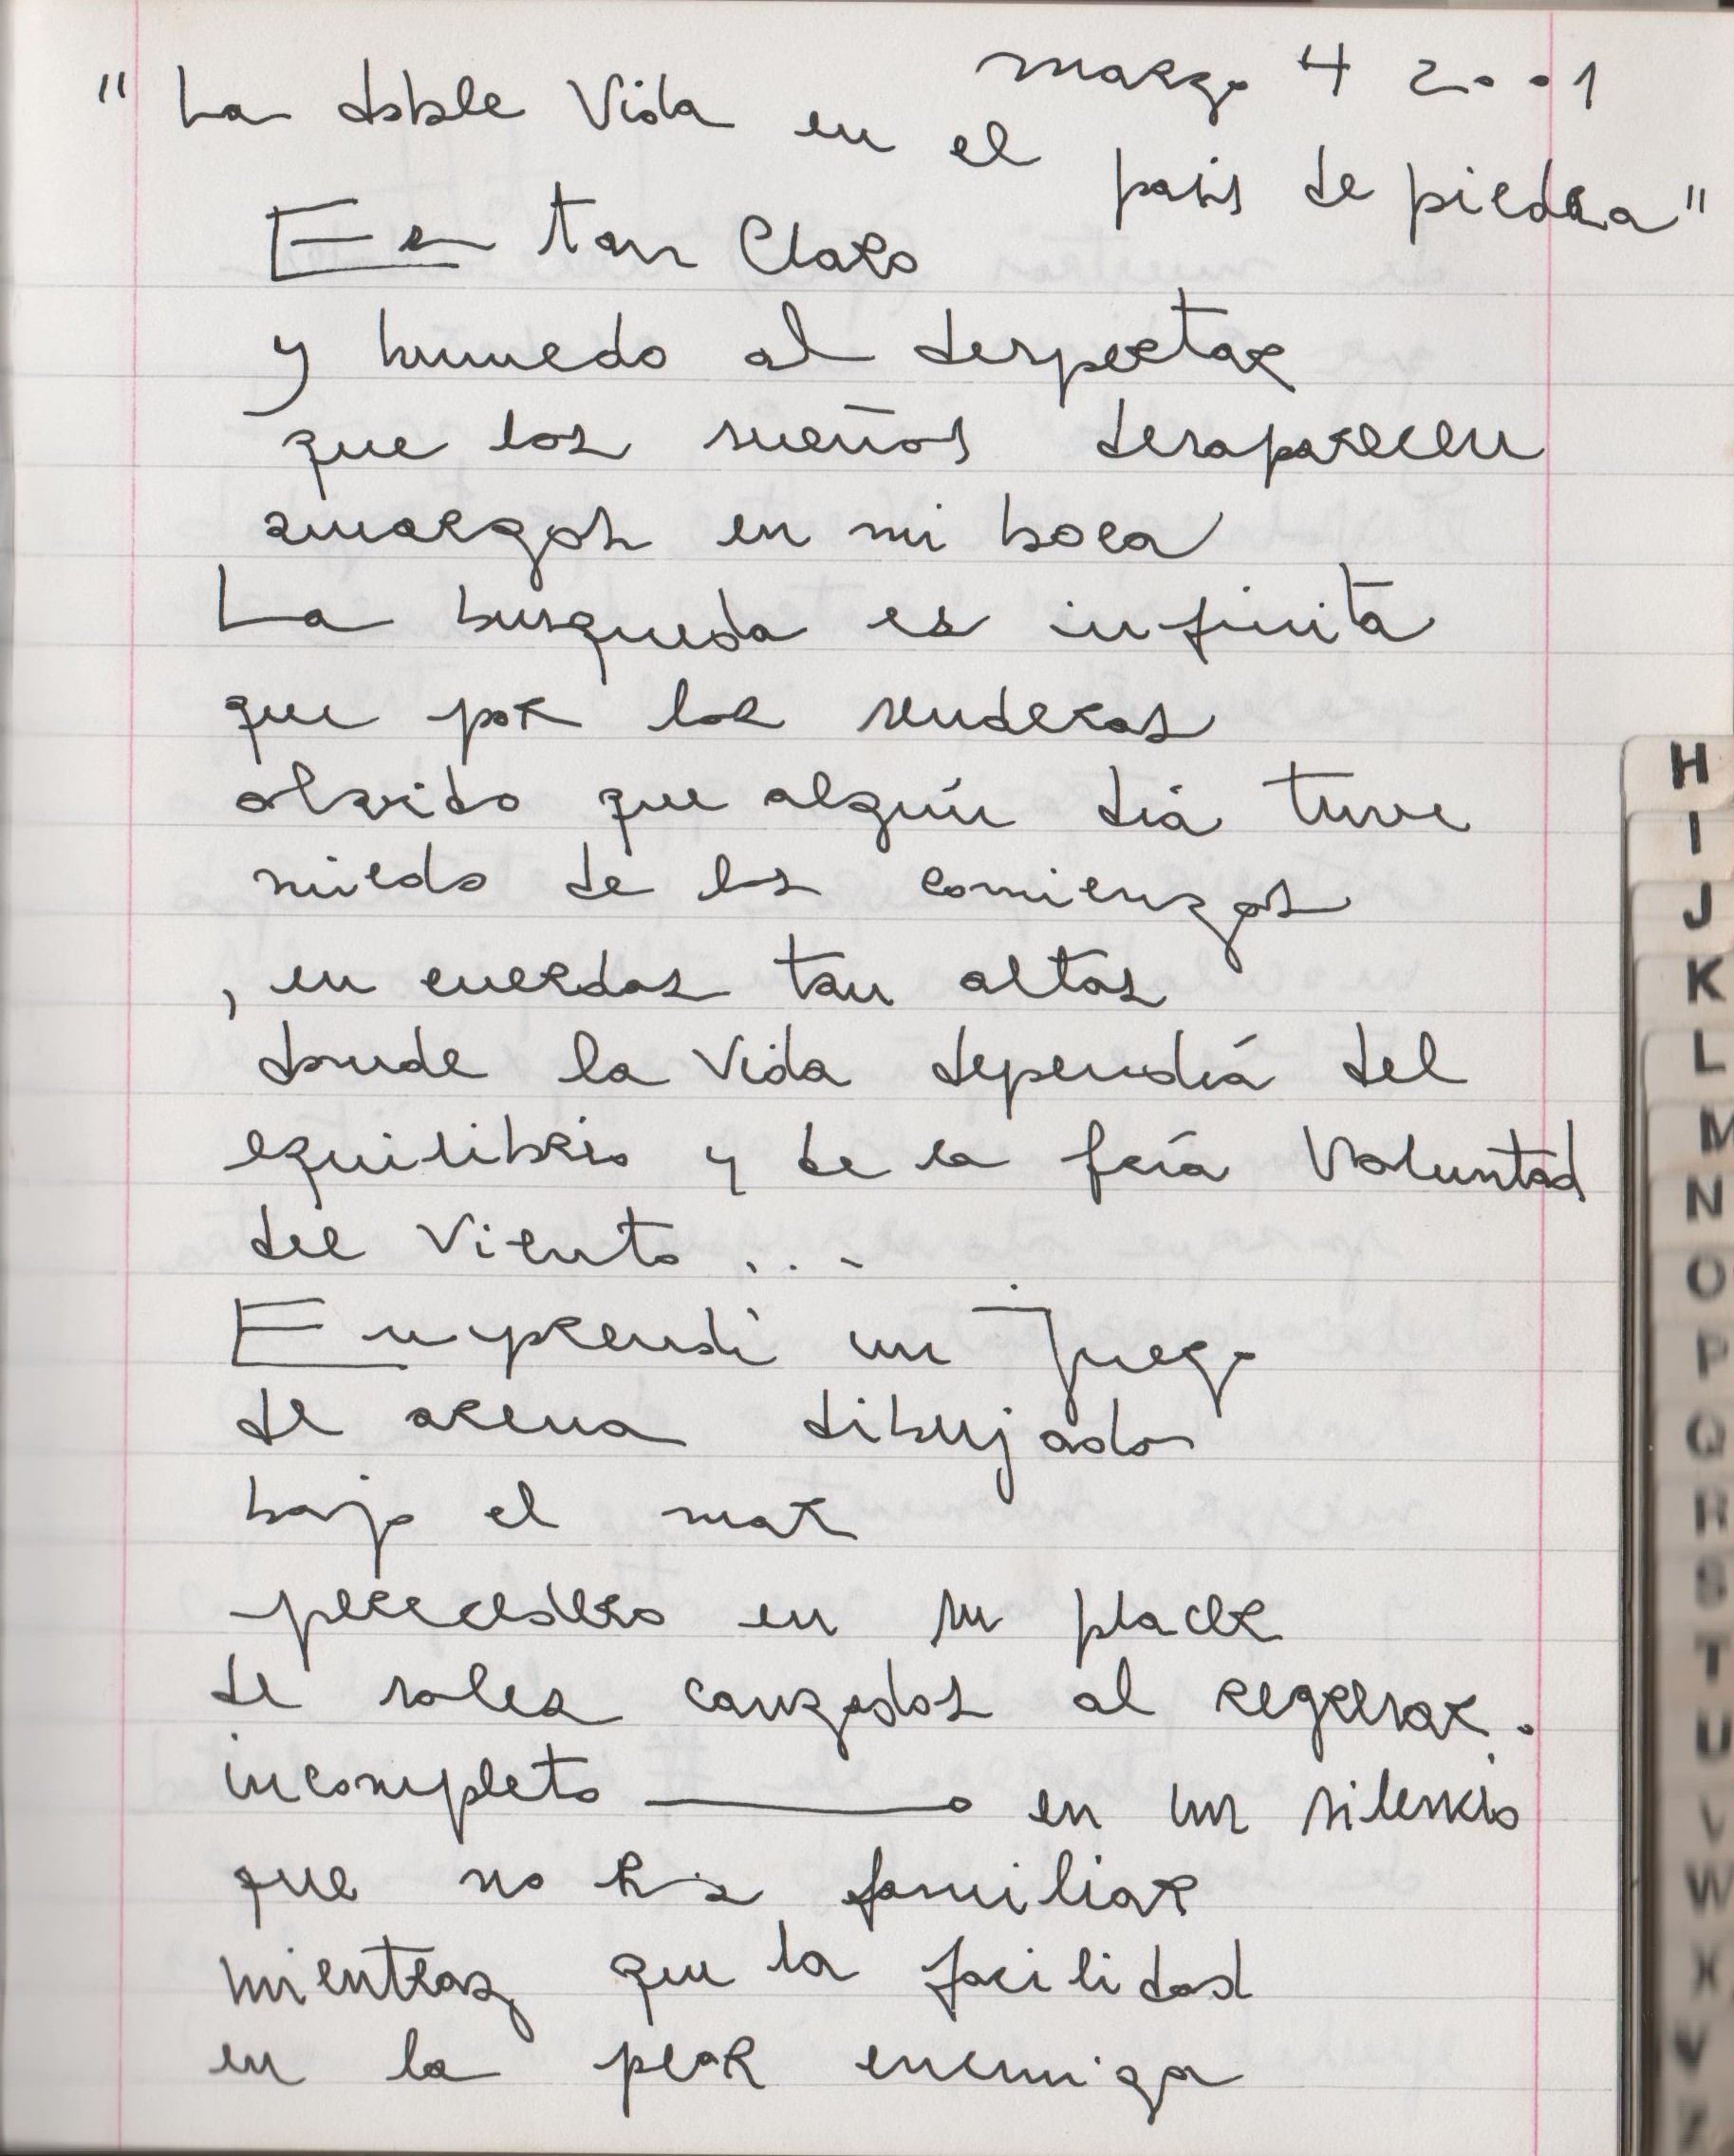 marzo 4 2001
"La doble Vida en el pais de piedra"
Es tan Claro
y humedo al despertar
que los sueños desaparecen
amargos en mi boca
La busqueda es infinita
que por los senderos
olvido que algún diá tuve
miedo de los comienzos
, en cuerdas tan altas
donde la Vida dependiá del
equilibrio y de la friá Voluntad
del Viento ...
Emprendi un Juego
de arena dibujado
bajo el mar
perecedero en su placer
de soles canzados al regresar.
incompleto en un silencio
que no es familiar
mientras que la facilidad
en la peor enemiga
H
I
J
K
L
M
N
O
P
Q
R
S
T
U
V
W
X
Y
Z